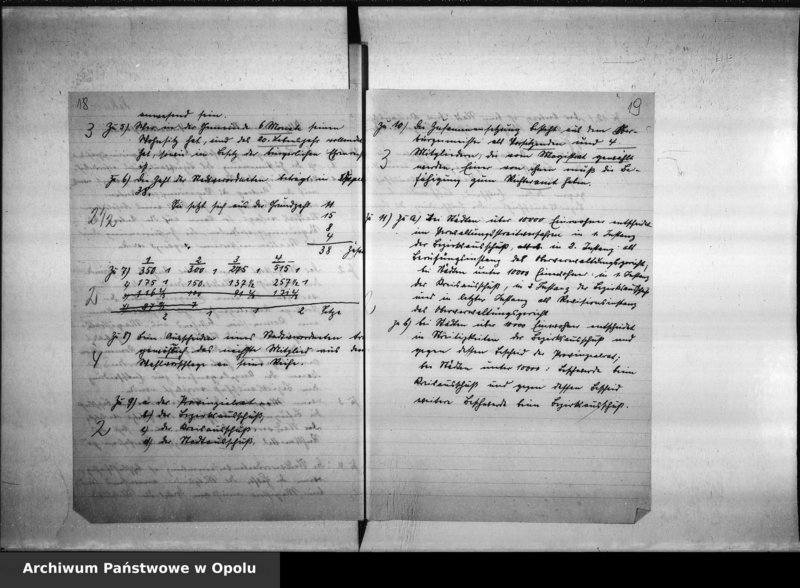 18
anwesend sein.
3 Zu 5). Wer in der Gemeinde 6 Monate seinen
Wohnsitz hat, und das 20. Lebensjahr vollendet
hat, sowie im Besitz der bürgerlichen Ehrenrechte
ist.
Zu 6) Die Zahl der Stadtverordneten beträgt in
38.
2 1/2 Sie setzt sich aus der Grundzahl 11
15
8
4
38
1 2 3 4
Zu 7) 350 1 300 1 275 1 515 1
175 1 150 137 1/2 257 1/2 1
2
2 1 1 2 Sitze
Zu 8) Beim Ausscheiden eines Stadtverordneten
4 das nächste Mitglied aus dem
Wahlvorschlage an seine Reihe.
Zu 9) a der Provinzialrat
2 b) der Bezirksausschuß,
c) der Kreisausschuß,
d) der Stadtausschuß,
19
Zu 10). Die Zusammensetzung besteht aus dem Ober-
bürgermeister als Vorsitzenden und 4
3 Mitgliedern, die vom Magistrat gewählt
werden. Einer von ihnen muß die Be-
fähigung zum Richteramt haben.
Zu 11) Zu a) Bei Städten über 10000 Einwohner entscheidet
im Verwaltungsstreitverfahren in 1. Instanz
der Bezirksausschuß, in 2. Instanz als
Berufungsinstanz das Oberverwaltungsgericht,
bei Städten unter 10000 Einwohner in 1. Instanz
der Kreisausschuß, in 2 Instanz der Bezirksausschuß
und in letzter Instanz als Revisionsinstanz
das Oberverwaltungsgericht
Zu b) bei Städten über 10000 Einwohner entscheidet
in Streitigkeiten der Bezirksausschuß und
gegen dessen Bescheid der Provinzialrat;
bei Städten unter 10000: Beschwerde beim
Kreisausschuß und gegen dessen Bescheid
weitere Beschwerde beim Bezirksausschuß.
Archiwum Państwowe w Opolu